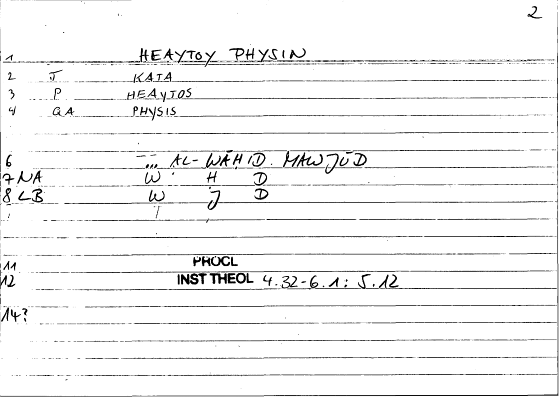 2
1 HEAYTOY PHYSIN
2 J KATA
3 P HEAYTOS
4 QA PHYSIS
6 ... AL-WĀḤID MAWJŪD
7 NA W H D
8 LB W J D
11 PROCL
12 INST THEOL 4.32-6.1: 5.12
14?